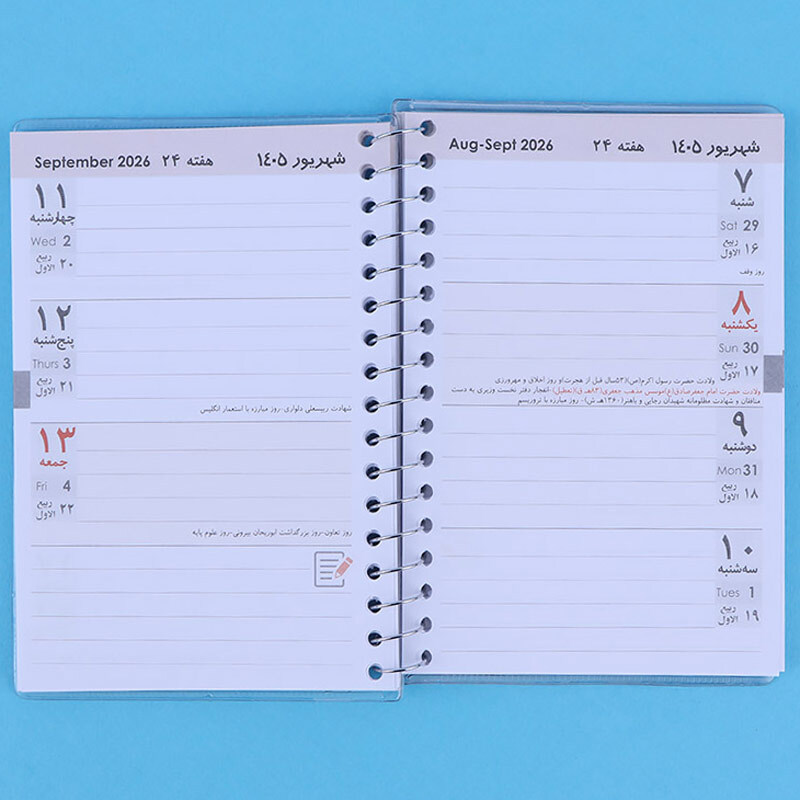 شهریور ۱۴۰۵ هفته ۲۴ Aug-Sept 2026
۷
شنبه
Sat 29
۱۶ ربیع الاول
روز وقف
۸
یکشنبه
Sun 30
۱۷ ربیع الاول
ولادت حضرت رسول اکرم(ص)(۵۳سال قبل از هجرت)و روز اخلاق و مهرورزی
ولادت حضرت امام جعفرصادق(ع)موسس مذهب جعفری(۸۳هـ.ق)(تعطیل)-انفجار دفتر نخست وزیری به دست
منافقان و شهادت مظلومانه شهیدان رجایی و باهنر(۱۳۶۰هـ.ش)- روز مبارزه با تروریسم
۹
دوشنبه
Mon 31
۱۸ ربیع الاول
۱۰
سه‌شنبه
Tues 1
۱۹ ربیع الاول
شهریور ۱۴۰۵ هفته ۲۴ September 2026
۱۱
چهارشنبه
Wed 2
۲۰ ربیع الاول
۱۲
پنج‌شنبه
Thurs 3
۲۱ ربیع الاول
شهادت رییسعلی دلواری-روز مبارزه با استعمار انگلیس
۱۳
جمعه
Fri 4
۲۲ ربیع الاول
روز تعاون-روز بزرگداشت ابوریحان بیرونی-روز علوم پایه